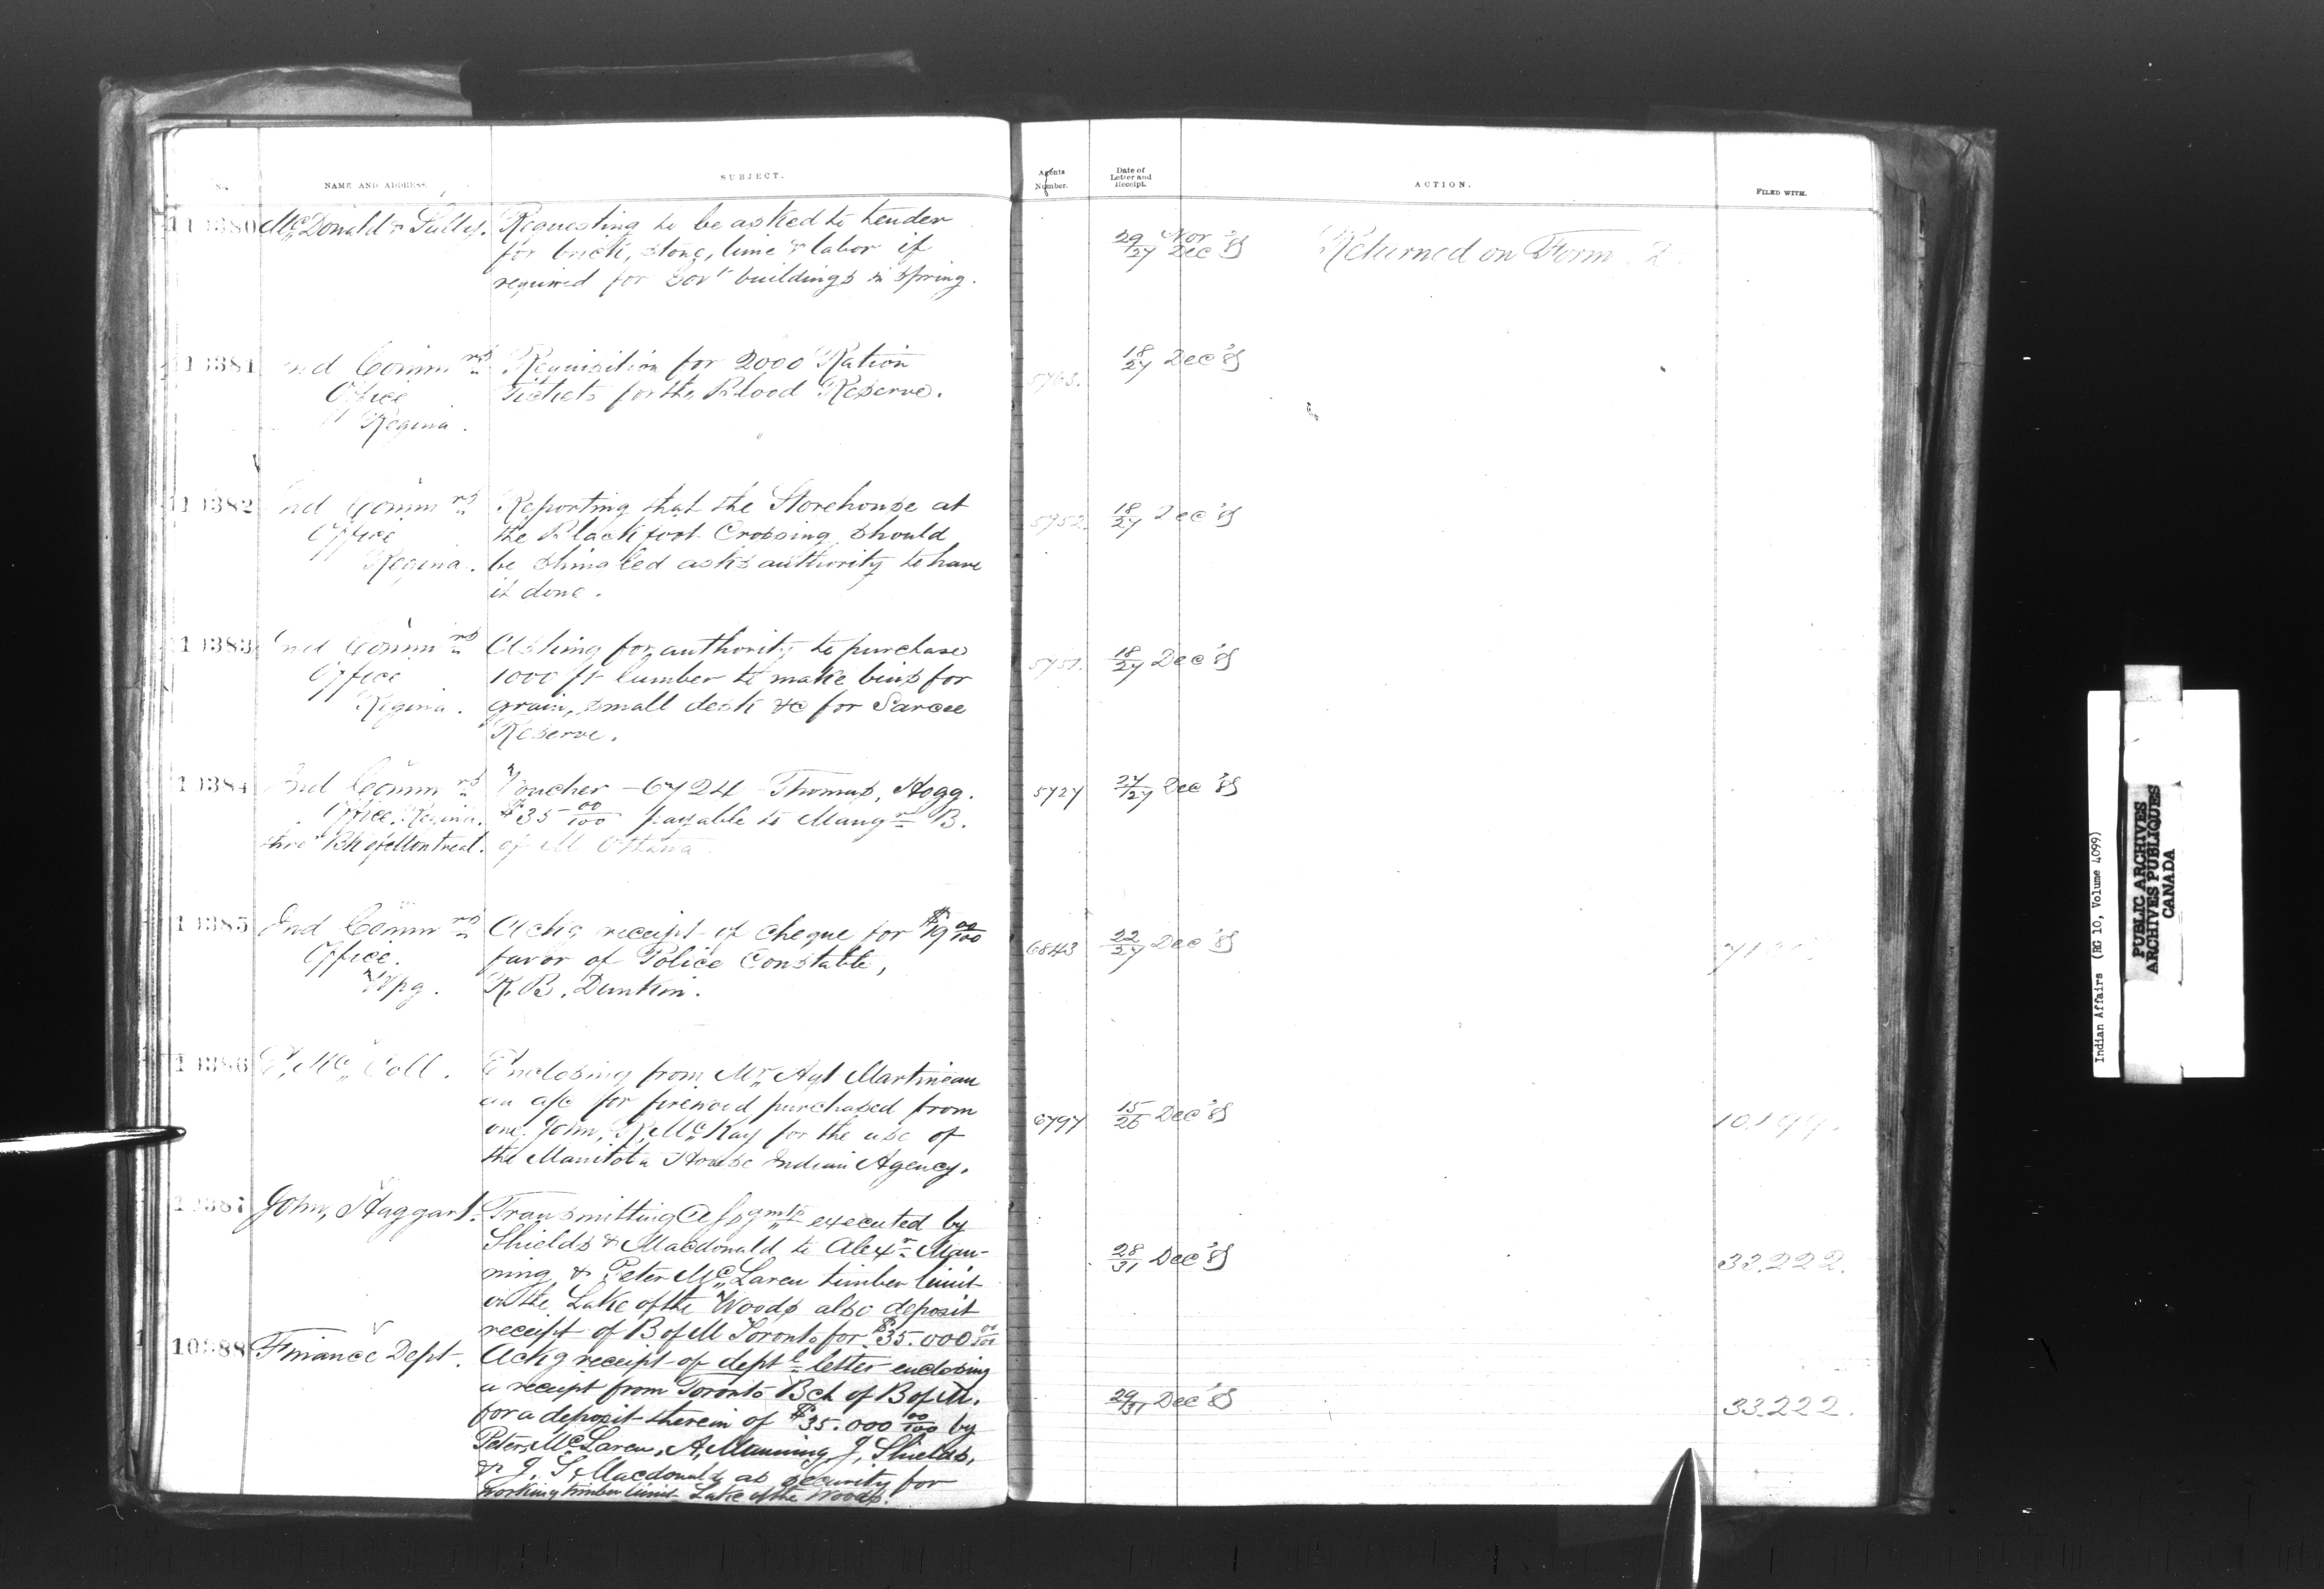 No.
NAME AND ADDRESS.
SUBJECT.
Agents Number.
Date of Letter and Receipt.
ACTION.
FILED WITH.
McDonald &
Requesting to be asked to tender
for brick, stone, lime & labor if
required for Govt buildings in Spring.
29/27 Nov Dec '85
Returned on Form 2.
Ind Commrs
Office
Regina.
Requisition for 2000 Ration
Tickets for the Blood Reserve.
18/27 Dec '85
Ind Commrs
Office
Regina.
Reporting that the Storehouse at
the Blackfoot Crossing should
be shingled asks authority to have
it done.
5752.
18/27 Dec '85
Ind Commrs
Office
Regina.
Asking for authority to purchase
1000 ft lumber to make bins for
grain, small desk &c for Sarcee
Reserve.
5751.
18/27 Dec '85
Ind Commrs
Office, Regina.
thro' Bk of Montreal.
Voucher - 6724 - Thomas, Hogg.
$35 00/100 payable to Mangr B.
of M Ottawa
5727
24/27 Dec '85
Ind Commrs
Office.
Wpg.
Ackg receipt of cheque for $19 00/100
favor of Police Constable,
R. B. Dunkin.
6843
22/27 Dec '85
E, McColl.
Enclosing from Mr Agt Martineau
an a/c for firewood purchased from
one John, R, McKay for the use of
the Manitoba House Indian Agency.
6797
15/26 Dec '85
10.199.
John, Haggart.
Transmitting Assgmts executed by
Shields & Macdonald to Alexr Man-
ning & Peter McLaren timber limit
on the Lake of the Woods also deposit
receipt of B of M Toronto for $35.000 00/100
28/31 Dec '85
33.222.
10388
Finance Dept.
Ackg receipt of deptl letter enclosing
a receipt from Toronto Bch of B of M.
for a deposit therein of $35.000 00/100 by
Peter, McLaren, A, Manning, J, Shields,
& J, S, Macdonald as security for
working timber limit Lake of the Woods.
29/31 Dec '85
33.222.
Indian Affairs (RG 10, Volume 4099)
PUBLIC ARCHIVES
ARCHIVES PUBLIQUES
CANADA